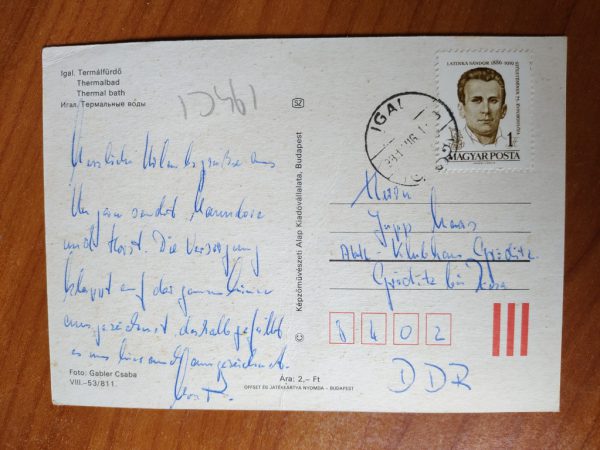 Igal. Termálfürdő
Thermalbad
Thermal bath
Игал. Термальные воды
SZ
Herzliche Urlaubsgrüße aus
Ungarn sendet
und Horst. Die Versorgung
klappt auf der ganzen Linie
ausgezeichnet deshalb gefällt
es uns hier auch ausgezeichnet.
Foto: Gabler Csaba
VIII.–53/811.
© Képzőművészeti Alap Kiadóvállalata, Budapest
Ára: 2,– Ft
OFFSET ÉS JÁTÉKKÁRTYA NYOMDA – BUDAPEST
LATINKA SÁNDOR 1886-1919
1Ft
MAGYAR POSTA
IGAL
Herrn
Jupp Maas
Klubhaus Gröditz
Gröditz bei Riesa
8402
DDR